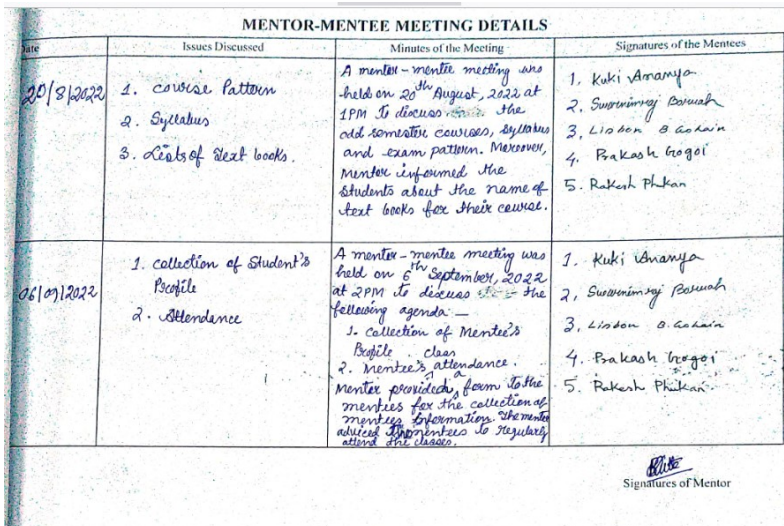 MENTOR-MENTEE MEETING DETAILS
Date
Issues Discussed
Minutes of the Meeting
Signatures of the Mentees
20/8/2022
1. course Pattern
2. Syllabus
3. Lists of Text books.
A mentor-mentee meeting was
held on 20th August, 2022 at
1PM to discuss the
odd semester courses, syllabus
and exam pattern. Moreover,
Mentor informed the
students about the name of
text books for their course.
1. Kuki Ananya
2. Swarnimraj Boruah
3, Lisbon B Gohain
4. Prakash Gogoi
5. Rakesh Phukan
06/09/2022
1. collection of Student's
Profile
2. Attendance
A mentor-mentee meeting was
held on 6th September, 2022
at 2PM to discuss the
following agenda:—
1. Collection of Mentee's
Profile. class
2. Mentee's attendance.
Mentor provided a form to the
mentees for the collection of
mentees information. The mentor
adviced the mentees to regularly
attend the classes.
1. Kuki Ananya
2, Swarnimraj Boruah
3, Lisbon B. Gohain
4. Prakash Gogoi
5. Rakesh Phukan
Signatures of Mentor